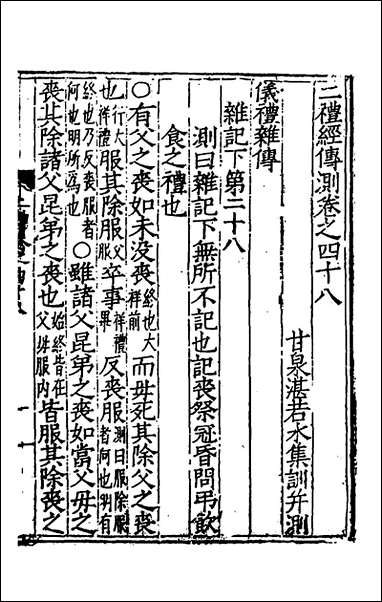 二禮經傳測卷之四十八
甘泉湛若水集訓并測
儀禮雜傳
雜記下第二十八
測曰雜記下無所不記也記喪祭冠昏問弔飲
食之禮也
○有父之喪如未没喪終也大祥前而毋死其除父之喪
也行大祥禮服其除服卒事祥禮畢反喪服測曰服除服者何也明有
終也乃反喪服者何也明所爲也○雖諸父昆弟之喪如當父毋之
喪其除諸父昆弟之喪也始終皆在父毋服内皆服其除喪之